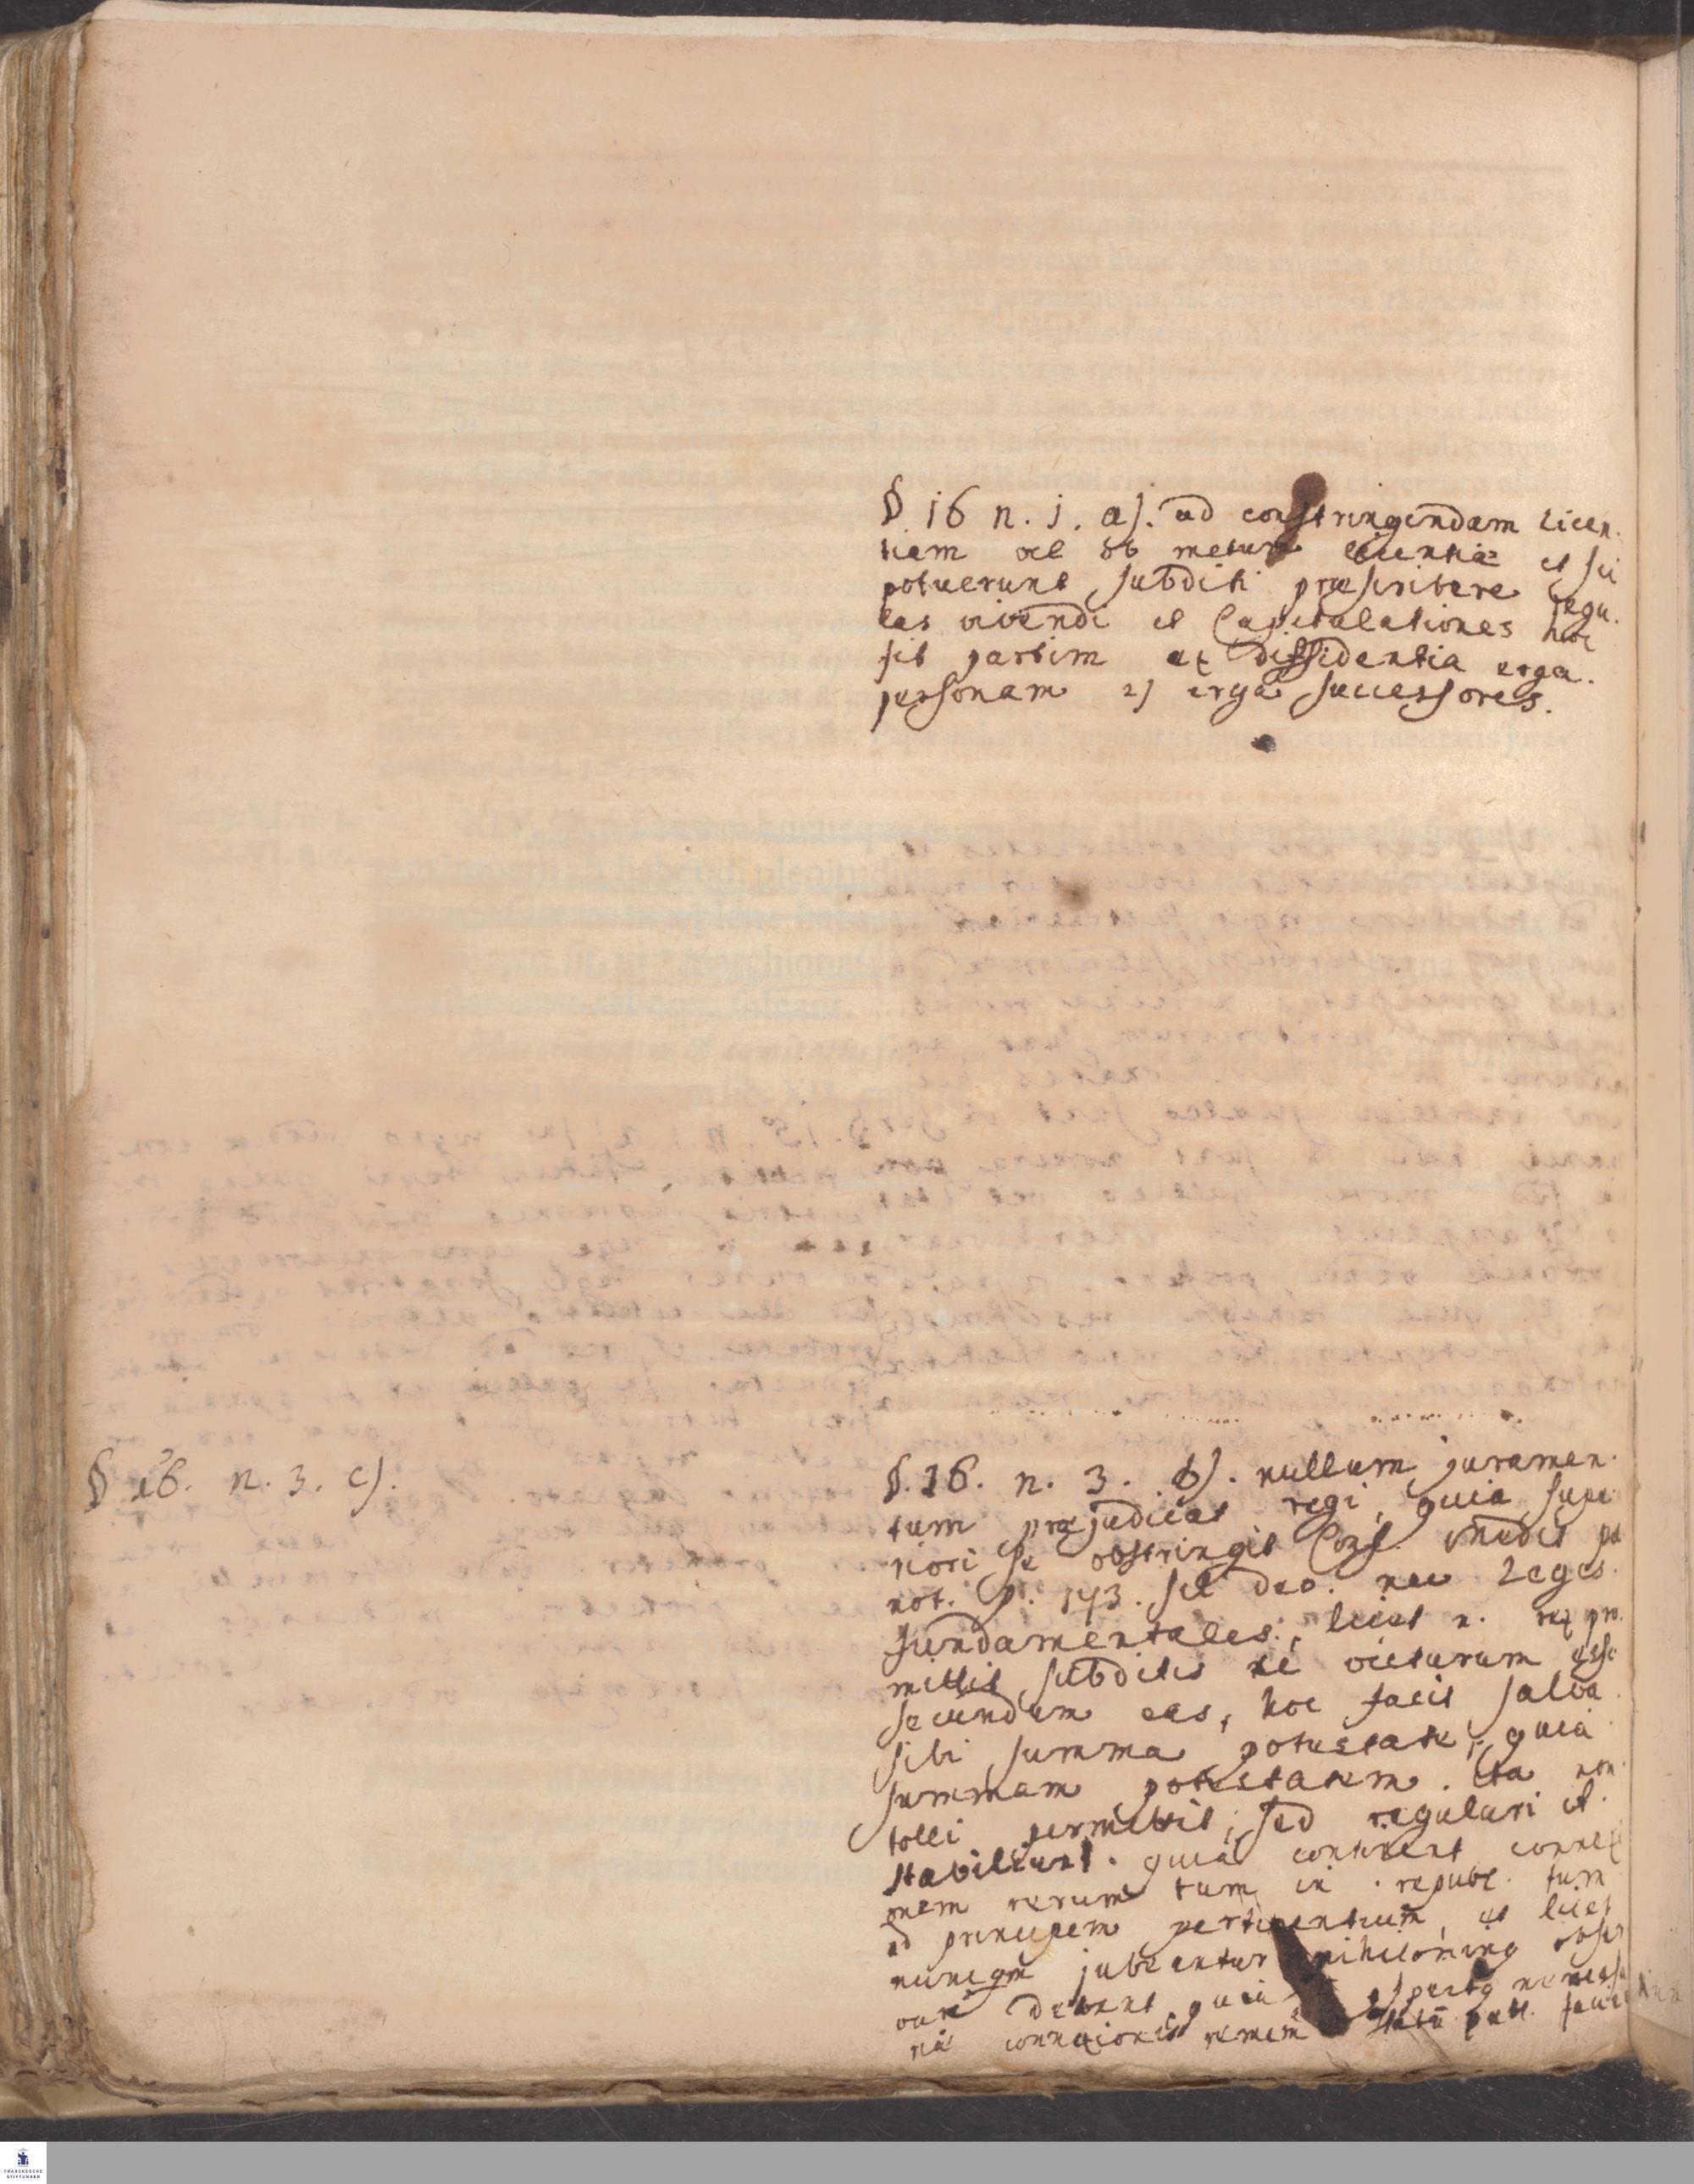 § 16 n. 1. a). ad constringendam licen.
tiam vel ob metum licentiæ et sci
potuerunt subditi præscribere regu.
las vivendi et Capitulationes hoc
fit partim ex diffidentia erga.
personam 2) erga successores.
§ 16. n. 3. c).
§. 16. n. 3. b). nullum juramen.
tum præjudicat regi, quia supe
riori se obstringit Conf.
not. p. 173. scil deo. nec Leges.
fundamentales, licet n. rex pro.
mittit subditis se victurum esse
secundum eas, hoc facit salva
sibi summa potestate, quia
summam potestatem. ita non
tolli permittit, sed regulari et
stabiliunt. quia continent connexi
onem rerum tum in republ. tum
ad principem pertinentium, et licet
nunqm jubeantur nihilominq obser
vari debent quia
ria connexionis
FRANCKESCHE
STIFTUNGEN